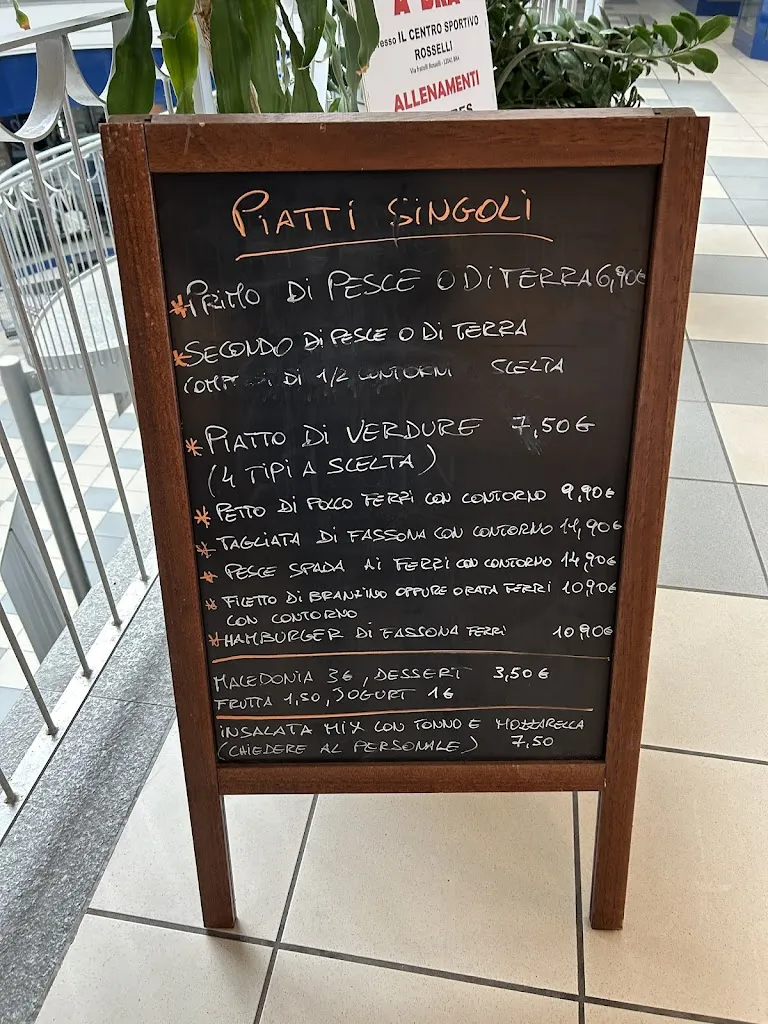 A BRA
presso IL CENTRO SPORTIVO
ROSSELLI
ALLENAMENTI
PIATTI SINGOLI
*PRIMO DI PESCE O DI TERRA 6,90€
*SECONDO DI PESCE O DI TERRA
DI 1/2 CONTORNI SCELTA
*PIATTO DI VERDURE 7,50€
(4 TIPI A SCELTA)
*PETTO DI POLLO FERRI CON CONTORNO 9,90€
*TAGLIATA DI FASSONA CON CONTORNO 14,90€
*PESCE SPADA AI FERRI CON CONTORNO 14,90€
*FILETTO DI BRANZINO OPPURE ORATA FERRI 10,90€
CON CONTORNO
*HAMBURGER DI FASSONA FERRI 10,90€
MACEDONIA 3€, DESSERT 3,50€
FRUTTA 1,50, JOGURT 1€
INSALATA MIX CON TONNO E MOZZARELLA
(CHIEDERE AL PERSONALE) 7,50